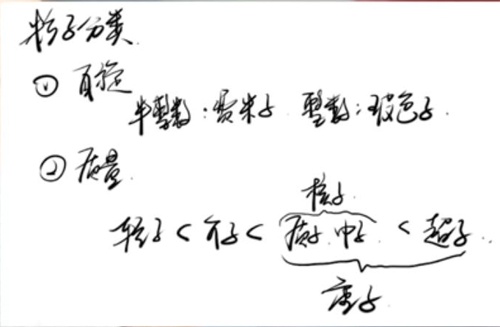 粒子分类
① 自旋
半整数：费米子 整数：玻色子
② 质量
核子
轻子 < 介子 < 质子 中子 < 超子
重子